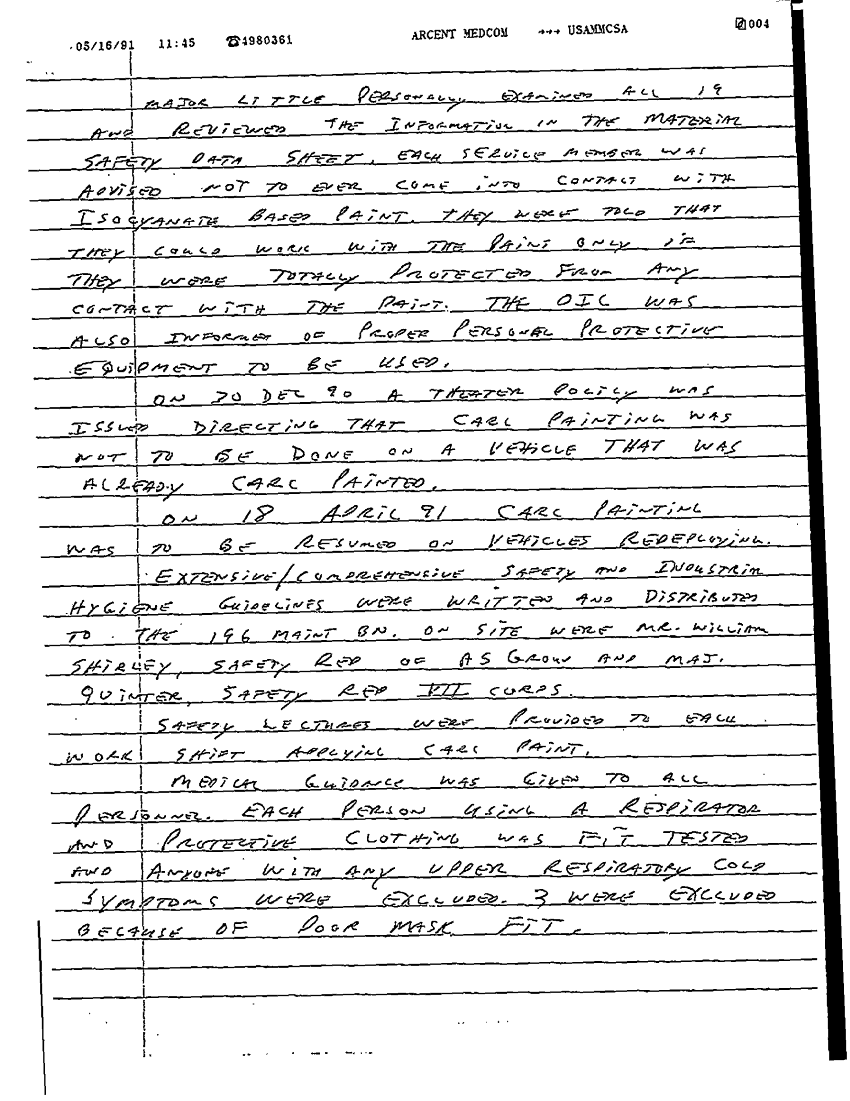 05/16/91 11:45 ☎4980361 ARCENT MEDCOM →→→ USAMMCSA 004
MAJOR LITTLE PERSONALLY EXAMINED ALL 19
AND REVIEWED THE INFORMATION IN THE MATERIAL
SAFETY DATA SHEET. EACH SERVICE MEMBER WAS
ADVISED NOT TO EVER COME INTO CONTACT WITH
ISOCYANATE BASED PAINT. THEY WERE TOLD THAT
THEY COULD WORK WITH THE PAINT ONLY IF
THEY WERE TOTALLY PROTECTED FROM ANY
CONTACT WITH THE PAINT. THE OIC WAS
ALSO INFORMED OF PROPER PERSONAL PROTECTIVE
EQUIPMENT TO BE USED.
ON DEC 90 A THEATER POLICY WAS
ISSUED DIRECTING THAT CARC PAINTING WAS
NOT TO BE DONE ON A VEHICLE THAT WAS
ALREADY CARC PAINTED.
ON 18 APRIL 91 CARC PAINTING
WAS TO BE RESUMED ON VEHICLES REDEPLOYING.
EXTENSIVE/COMPREHENSIVE SAFETY AND INDUSTRIA
HYGIENE GUIDELINES WERE WRITTEN AND DISTRIBUTED
TO THE 196 MAINT BN. ON SITE WERE MR. WILLIAM
SHIRLEY, SAFETY REP OF AS GROUP AND MAJ.
QUINTER, SAFETY REP VII CORPS.
SAFETY LECTURES WERE PROVIDED TO EACH
WORK SHIFT APPLYING CARC PAINT.
MEDICAL GUIDANCE WAS GIVEN TO ALL
PERSONNEL. EACH PERSON USING A RESPIRATOR
AND PROTECTIVE CLOTHING WAS FIT TESTED
AND ANYONE WITH ANY UPPER RESPIRATORY COLD
SYMPTOMS WERE EXCLUDED. 3 WERE EXCLUDED
BECAUSE OF POOR MASK FIT.